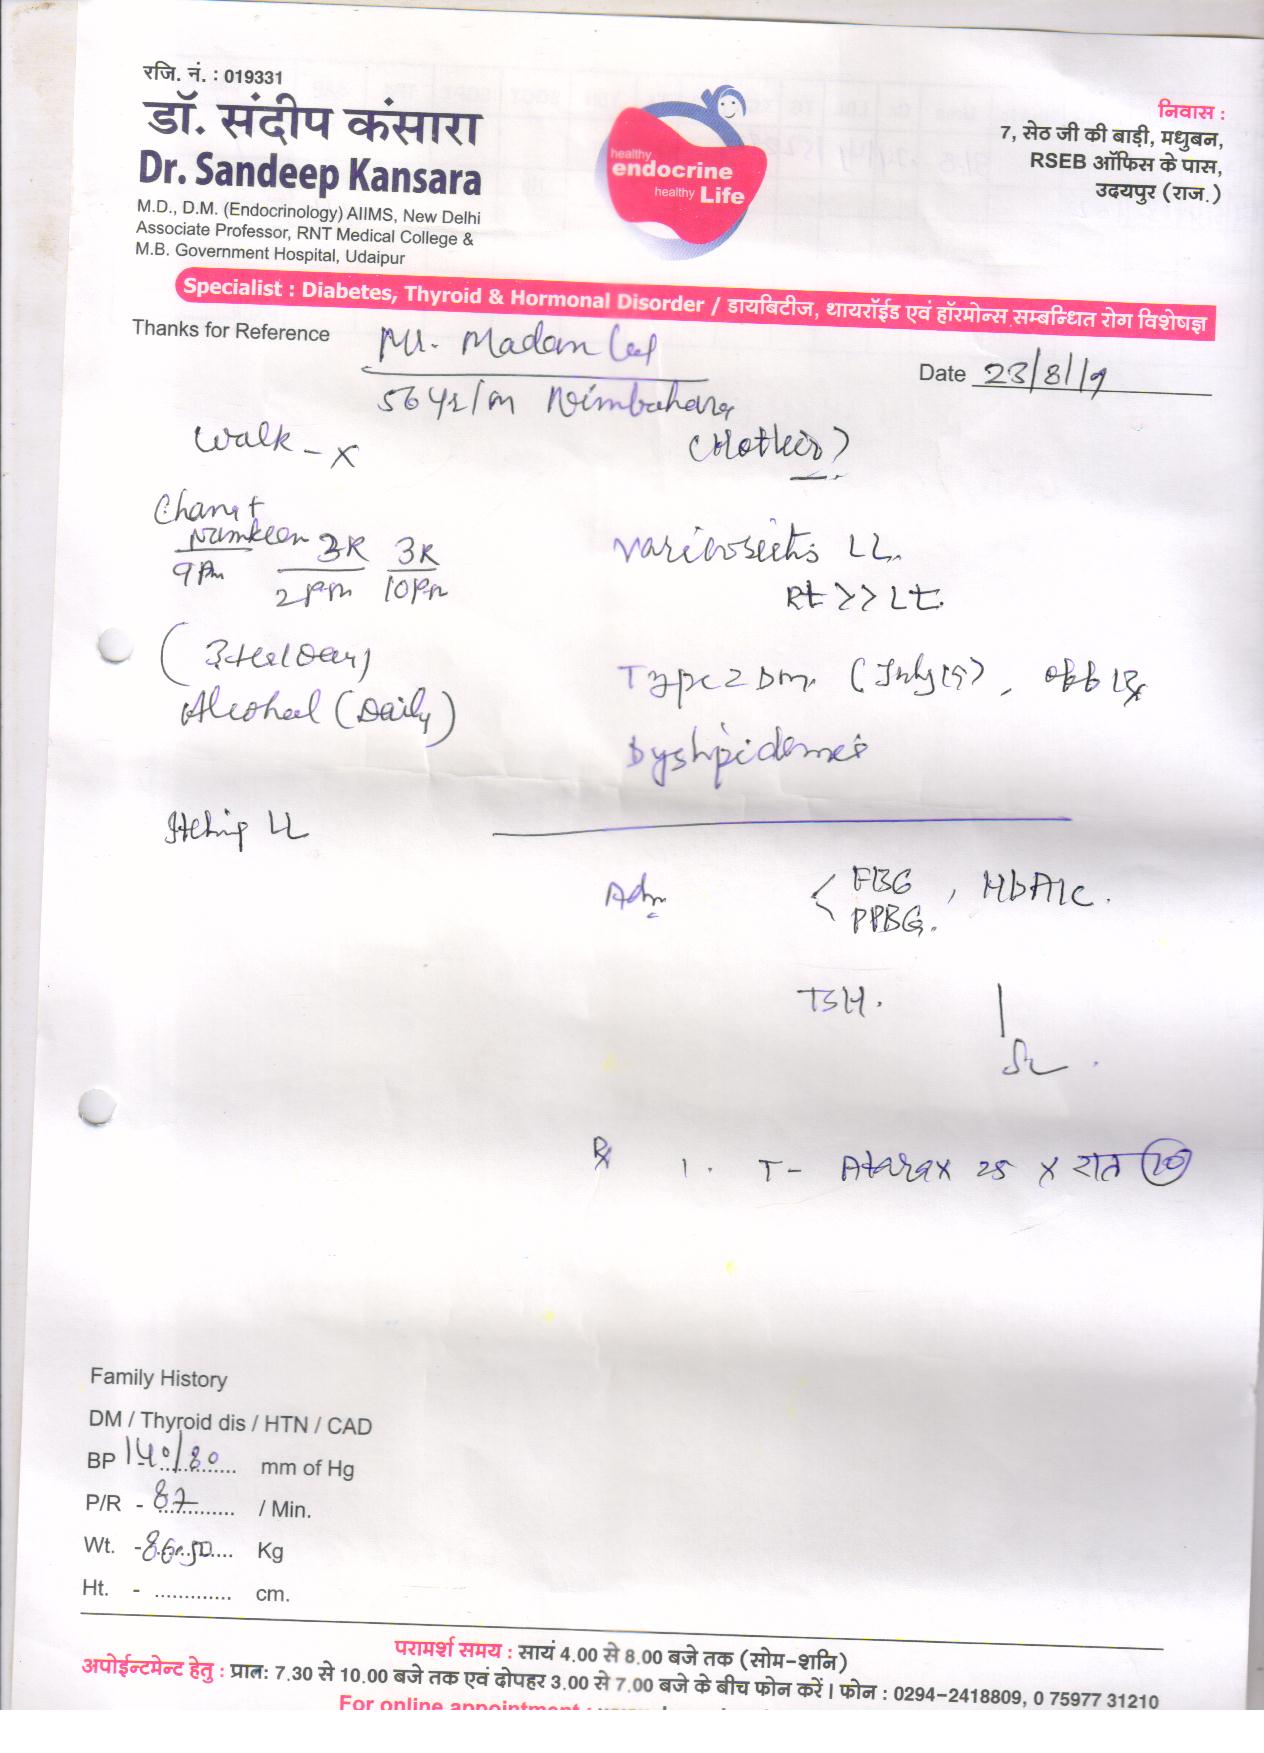 रजि. नं. : 019331
डॉ. संदीप कंसारा
Dr. Sandeep Kansara
M.D., D.M. (Endocrinology) AIIMS, New Delhi
Associate Professor, RNT Medical College &
M.B. Government Hospital, Udaipur
healthy
endocrine
healthy Life
निवास :
7, सेठ जी की बाड़ी, मधुबन,
RSEB ऑफिस के पास,
उदयपुर (राज.)
Specialist : Diabetes, Thyroid & Hormonal Disorder / डायबिटीज, थायरॉईड एवं हॉरमोन्स सम्बन्धित रोग विशेषज्ञ
Thanks for Reference
Mr. Madan Lal
Date 23/8/19
56 Yr/M Nimbahera
Walk - X
(Mother)
Namkeen 3R 3R
9 Pm 2 pm 10 Pm
LL.
Rt >> Lt.
Alcohol (Daily)
Type 2 Dm. (July 19), off Rx
Dyslipidemia
Itching LL
Adv
FBG, HbA1c.
PPBG.
TSH.
Rx 1. T- Atarax 25 X रात (10)
Family History
DM / Thyroid dis / HTN / CAD
BP 140/80 mm of Hg
P/R - 87 / Min.
Wt. - 86.50 Kg
Ht. - ............. cm.
परामर्श समय : सायं 4.00 से 8.00 बजे तक (सोम-शनि)
अपोईन्टमेन्ट हेतु : प्रातः 7.30 से 10.00 बजे तक एवं दोपहर 3.00 से 7.00 बजे के बीच फोन करें । फोन : 0294-2418809, 0 75977 31210
For online appointment :